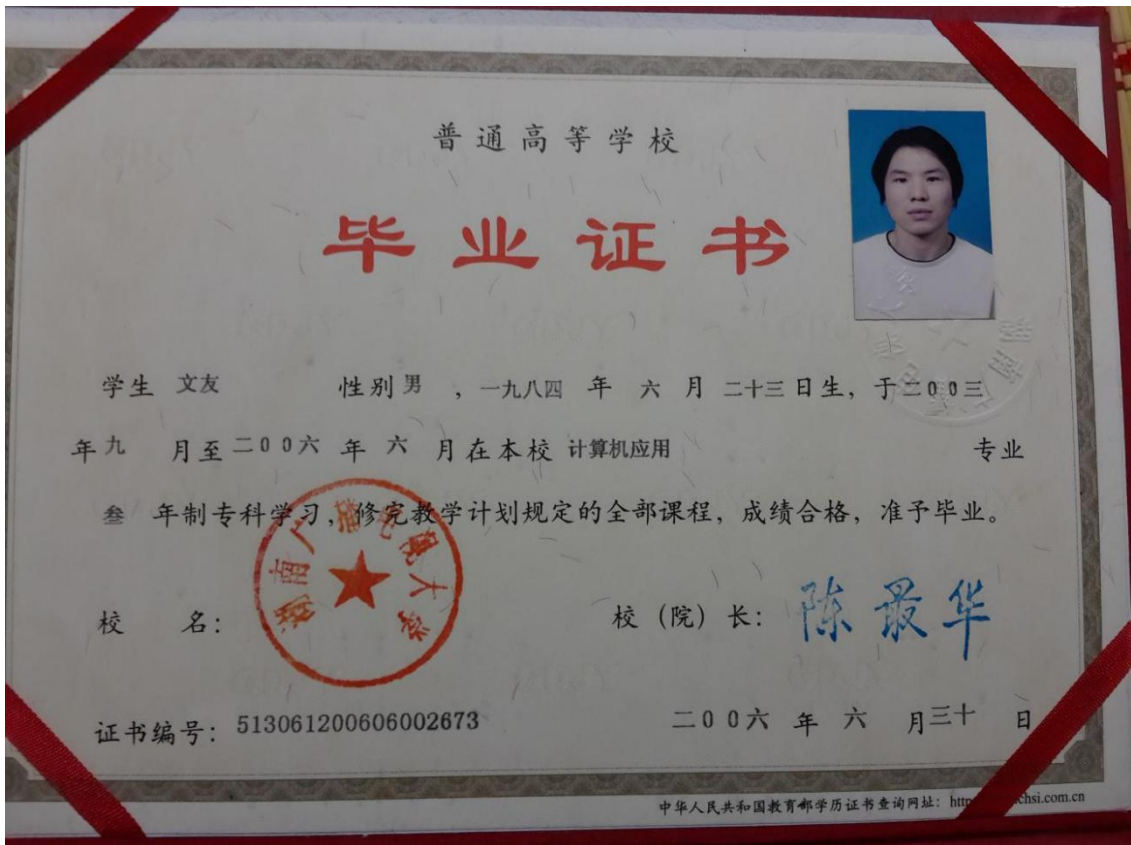 普通高等学校
毕业证书
学生 文友 性别 男 ，一九八四 年 六 月 二十三 日生，于二00三
年 九 月至 二00六 年 六 月在本校 计算机应用 专业
叁 年制专科学习，修完教学计划规定的全部课程，成绩合格，准予毕业。
湖南广播电视大学
校 名： 校（院）长： 陈最华
证书编号： 513061200606002673 二00六 年 六 月 三十 日
中华人民共和国教育部学历证书查询网址： chsi.com.cn